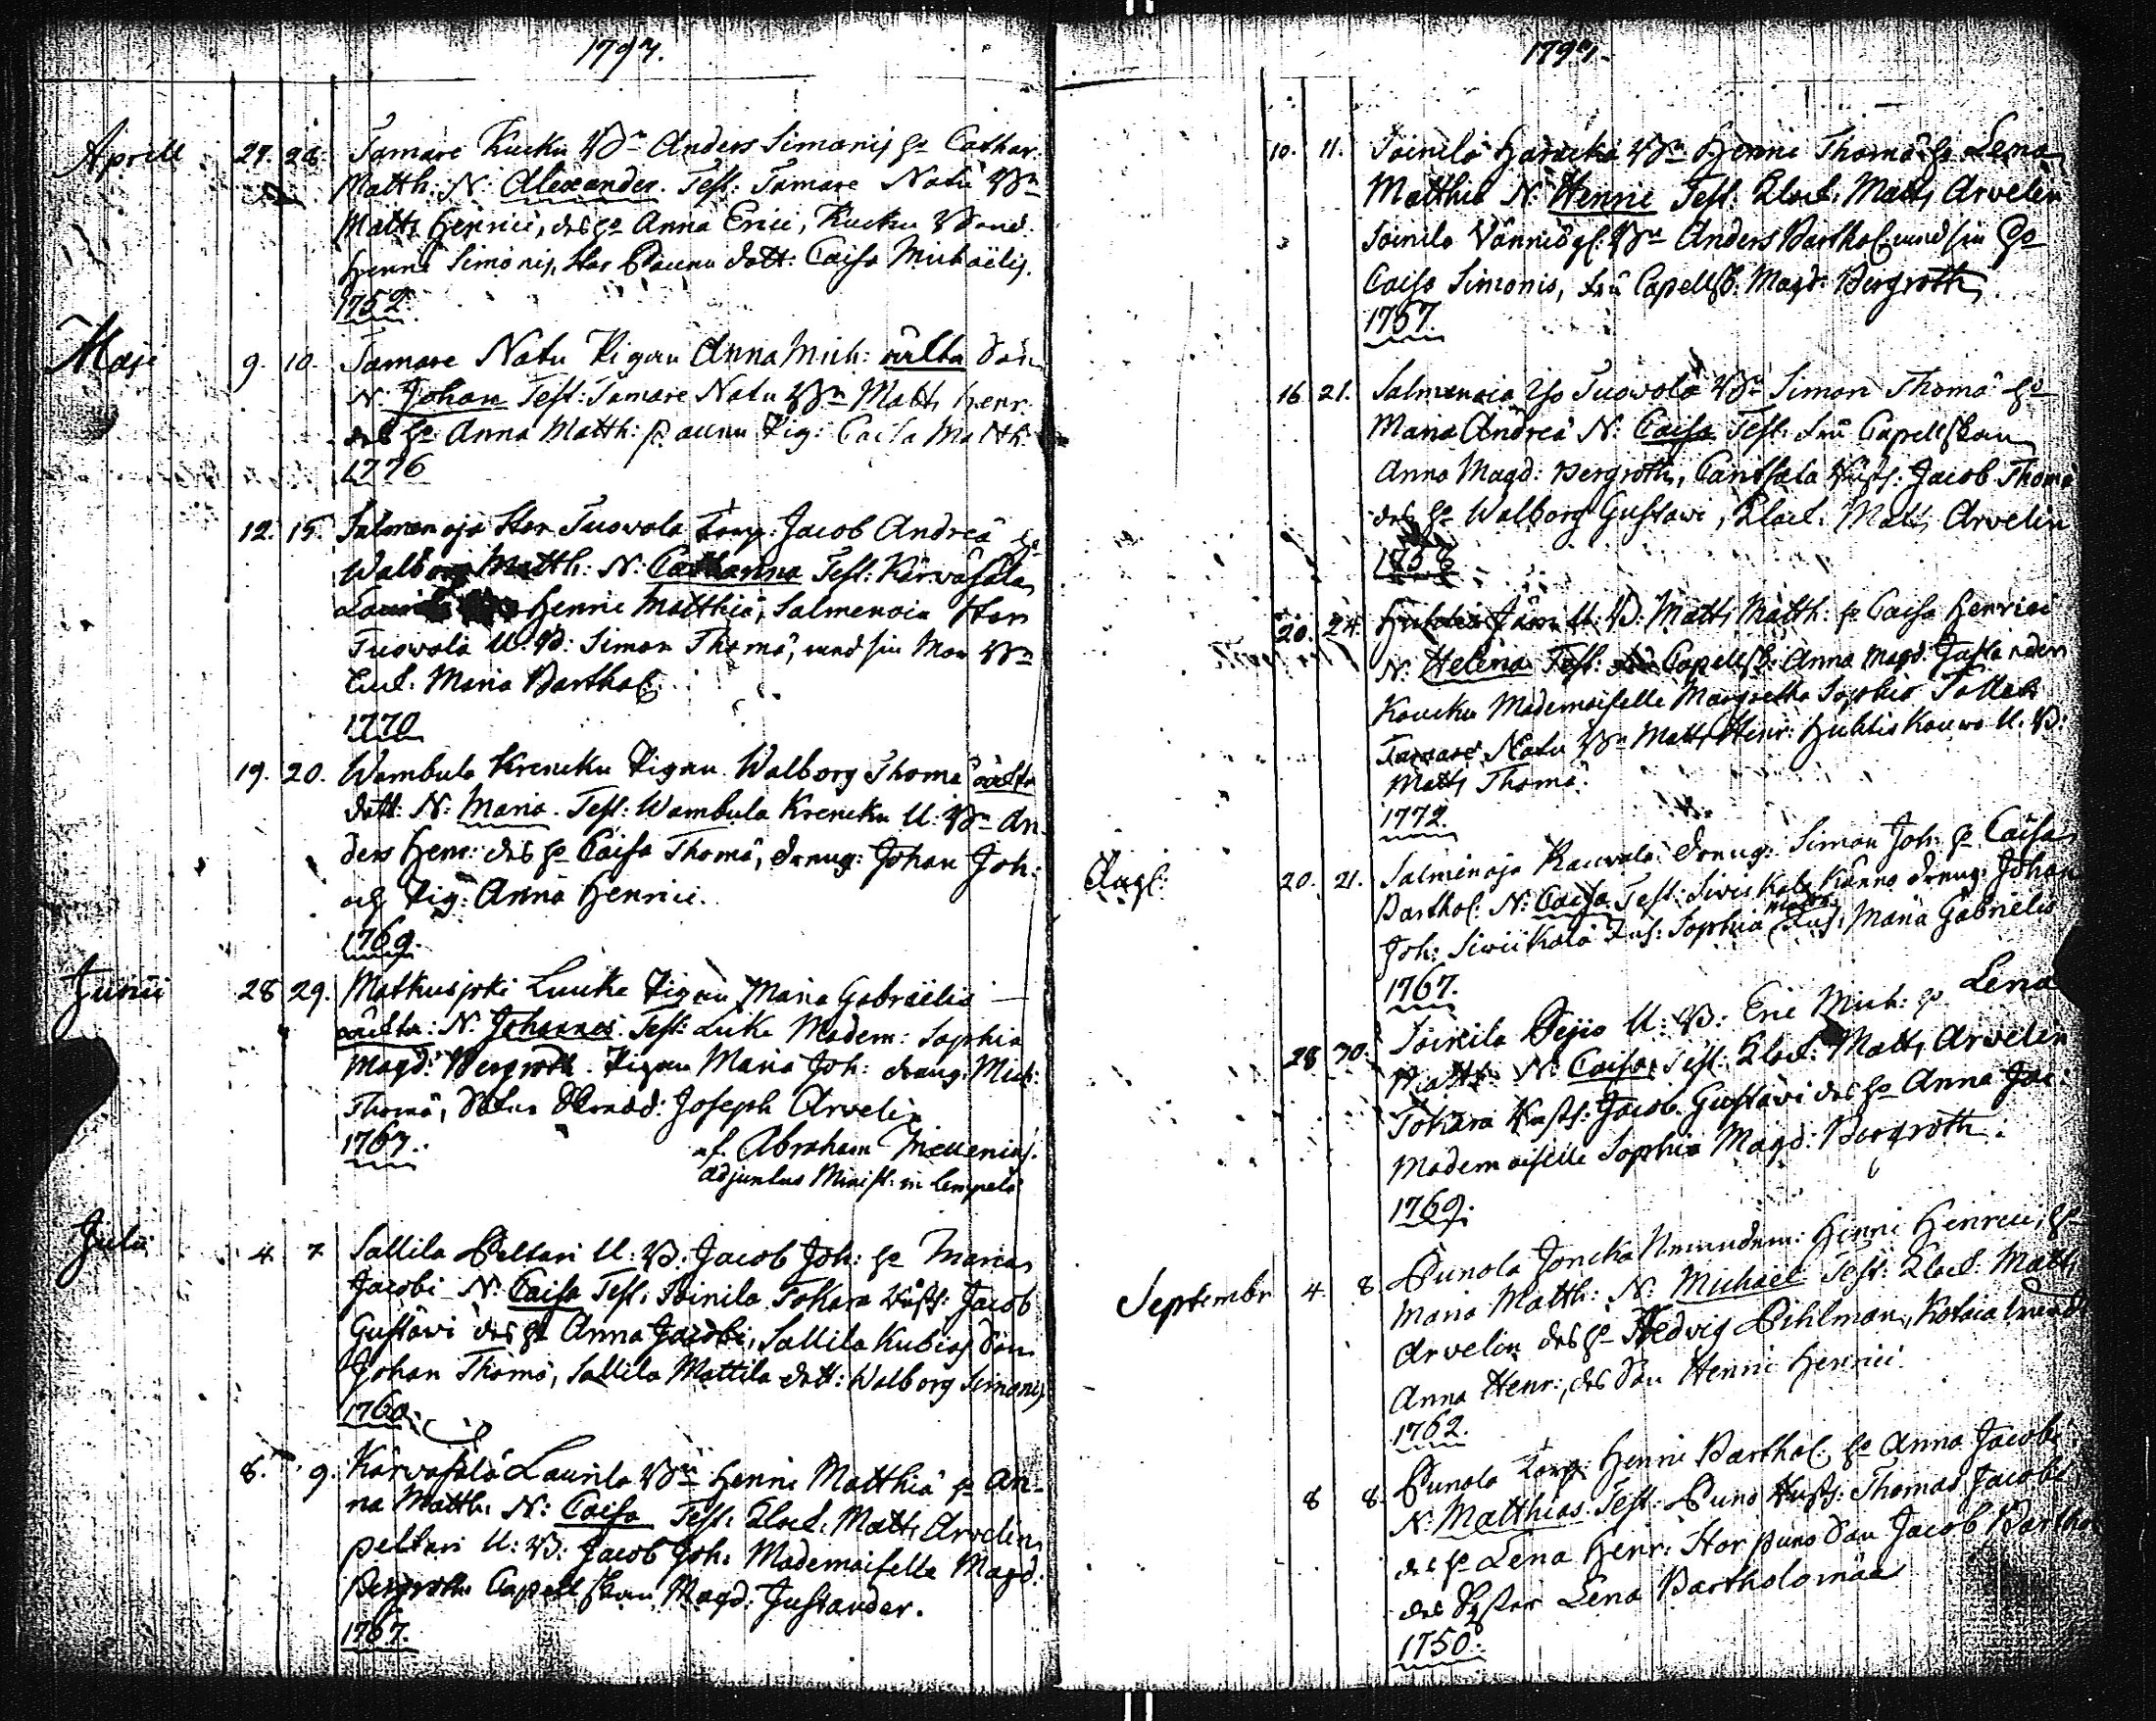 1797.
Aprill 27. 28. Tamare Kucku Bn Anders Simonis ho Cathar:
Matth: N: Alexander. Test: Tamare Natu Bn
Matts Henrici, des ho Anna Erici, Kucku
Henric Simonis, Stor Paunu dott: Caisa Michaëlis.
1752.
Maji 9. 10. Tamare Natu Pigan Anna Mich: oälta Son
N. Johan Test: Tamare Natu Bn Matts Henr:
des ho Anna Matth: Paunu Pig: Caisa Matth:
1776
12. 15. Salmenoja Stor Tuovola Torp: Jacob Andreä ho
Walborg Matth: N: Catharina Test: Karvasala
Laurila Henric Matthiä, Salmenoia Stor
Tuovola U. B: Simon Thomä, med sin Mor Bn
Enk. Maria Barthol:
1770
19. 20. Wambula Krencku Pigan Walborg Thomä oälta
dott: N: Maria. Test: Wambula Krencku U: Bn An-
ders Henr: des ho Caisa Thomä, dreng: Johan Joh:
och Pig: Anna Henrici.
1769.
Junii 28 29. Matkusjoki Luuke Pigan Maria Gabriëlis
oäkta: N. Johannes. Test: Luke Madem: Sophia
Magd: Bergroth. Pigan Maria Joh: dreng: Mich:
Thomä, Joseph Arvelin
1767.
af. Abraham
Adjunctus Minist: in Lempelä
Julii 4. 7 Sallila Peltari U: B: Jacob Joh: ho Maria
Jacobi N: Caisa Test: Soinila Tokara Jacob
Gustavi des ho Anna Jacobi, Sallila Kubias Son
Johan Thomä, Sallila Mattila dott: Walborg Simonis
1760.
8. 9. Karvasala Laurila Bn Henric Matthiä ho An-
na Matth: N: Caisa Test: Klock: Matts Arvelin,
Peltari U: B: Jacob Joh: Mademoiselle Magd:
Bergroth Capellskan Magd: Justander.
1767.
1797.
10. 11. Soinila Haracka Bn Henric Thomä ho Lena
Matthiä N: Henric Test: Klock: Matts Arvelin
Soinila Bn Anders Barthol: med sin ho
Caisa Simonis, Fru Capellsk: Magd: Bergroth,
1757.
16 21. Salmenoia Yso Tuovola Bn Simon Thomä ho
Maria Andreä N: Caisa Test: Fru Capellskan
Anna Magd: Bergroth, Jacob Thomä
des ho Walborg Gustavi, Klock: Matts Arvelin
1758
20. 24. U: B: Matts Matth: ho Caisa Henrici
N: Helena Test: Capellsk: Anna Magd: Justander
Koucku Mademoiselle Margretha Sophia
Tamare Natu Bn Matts Henr: Huhtis Kauro U. B:
Matts Thomä.
1772.
Aug: 20. 21. Salmenoja Rauvola dreng: Simon Joh: ho Caisa
Barthol: N: Caisa. Test: Siviikala Kanno dreng: Johan
Joh: Siviikala Inh: Sophia Inh: Maria Gabriëlis
1767.
28 30. Soinila Pejio U: B: Eric Mich: ho Lena
Matth: N: Caisa, Test: Klock: Matts Arvelin
Tokara Jacob Gustavi des ho Anna Jac:
Mademoiselle Sophia Magd: Bergroth.
1769.
Septembr 4. 8. Punola Joncka Henric Henrici, ho
Maria Matth: N: Michael Test: Klock: Matts
Arvelin des ho Hedvig Pihlman,
Anna Henr: des Son Henric Henrici.
1762.
8 8. Punola Torp: Henric Barthol: ho Anna Jacobi
N: Matthias. Test: Puno Thomas Jacobi
des ho Lena Henr: Stor Puno Son Jacob Bartho
des Syster Lena Bartholomäa
1750.